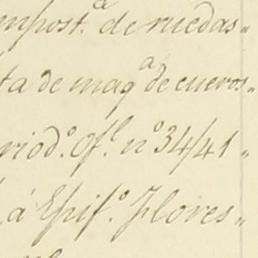 mpost.ª de ruedas "
ta de maqª de cueros "
riod.º Of.l nº 34/41 "
á Epif.º Flores "